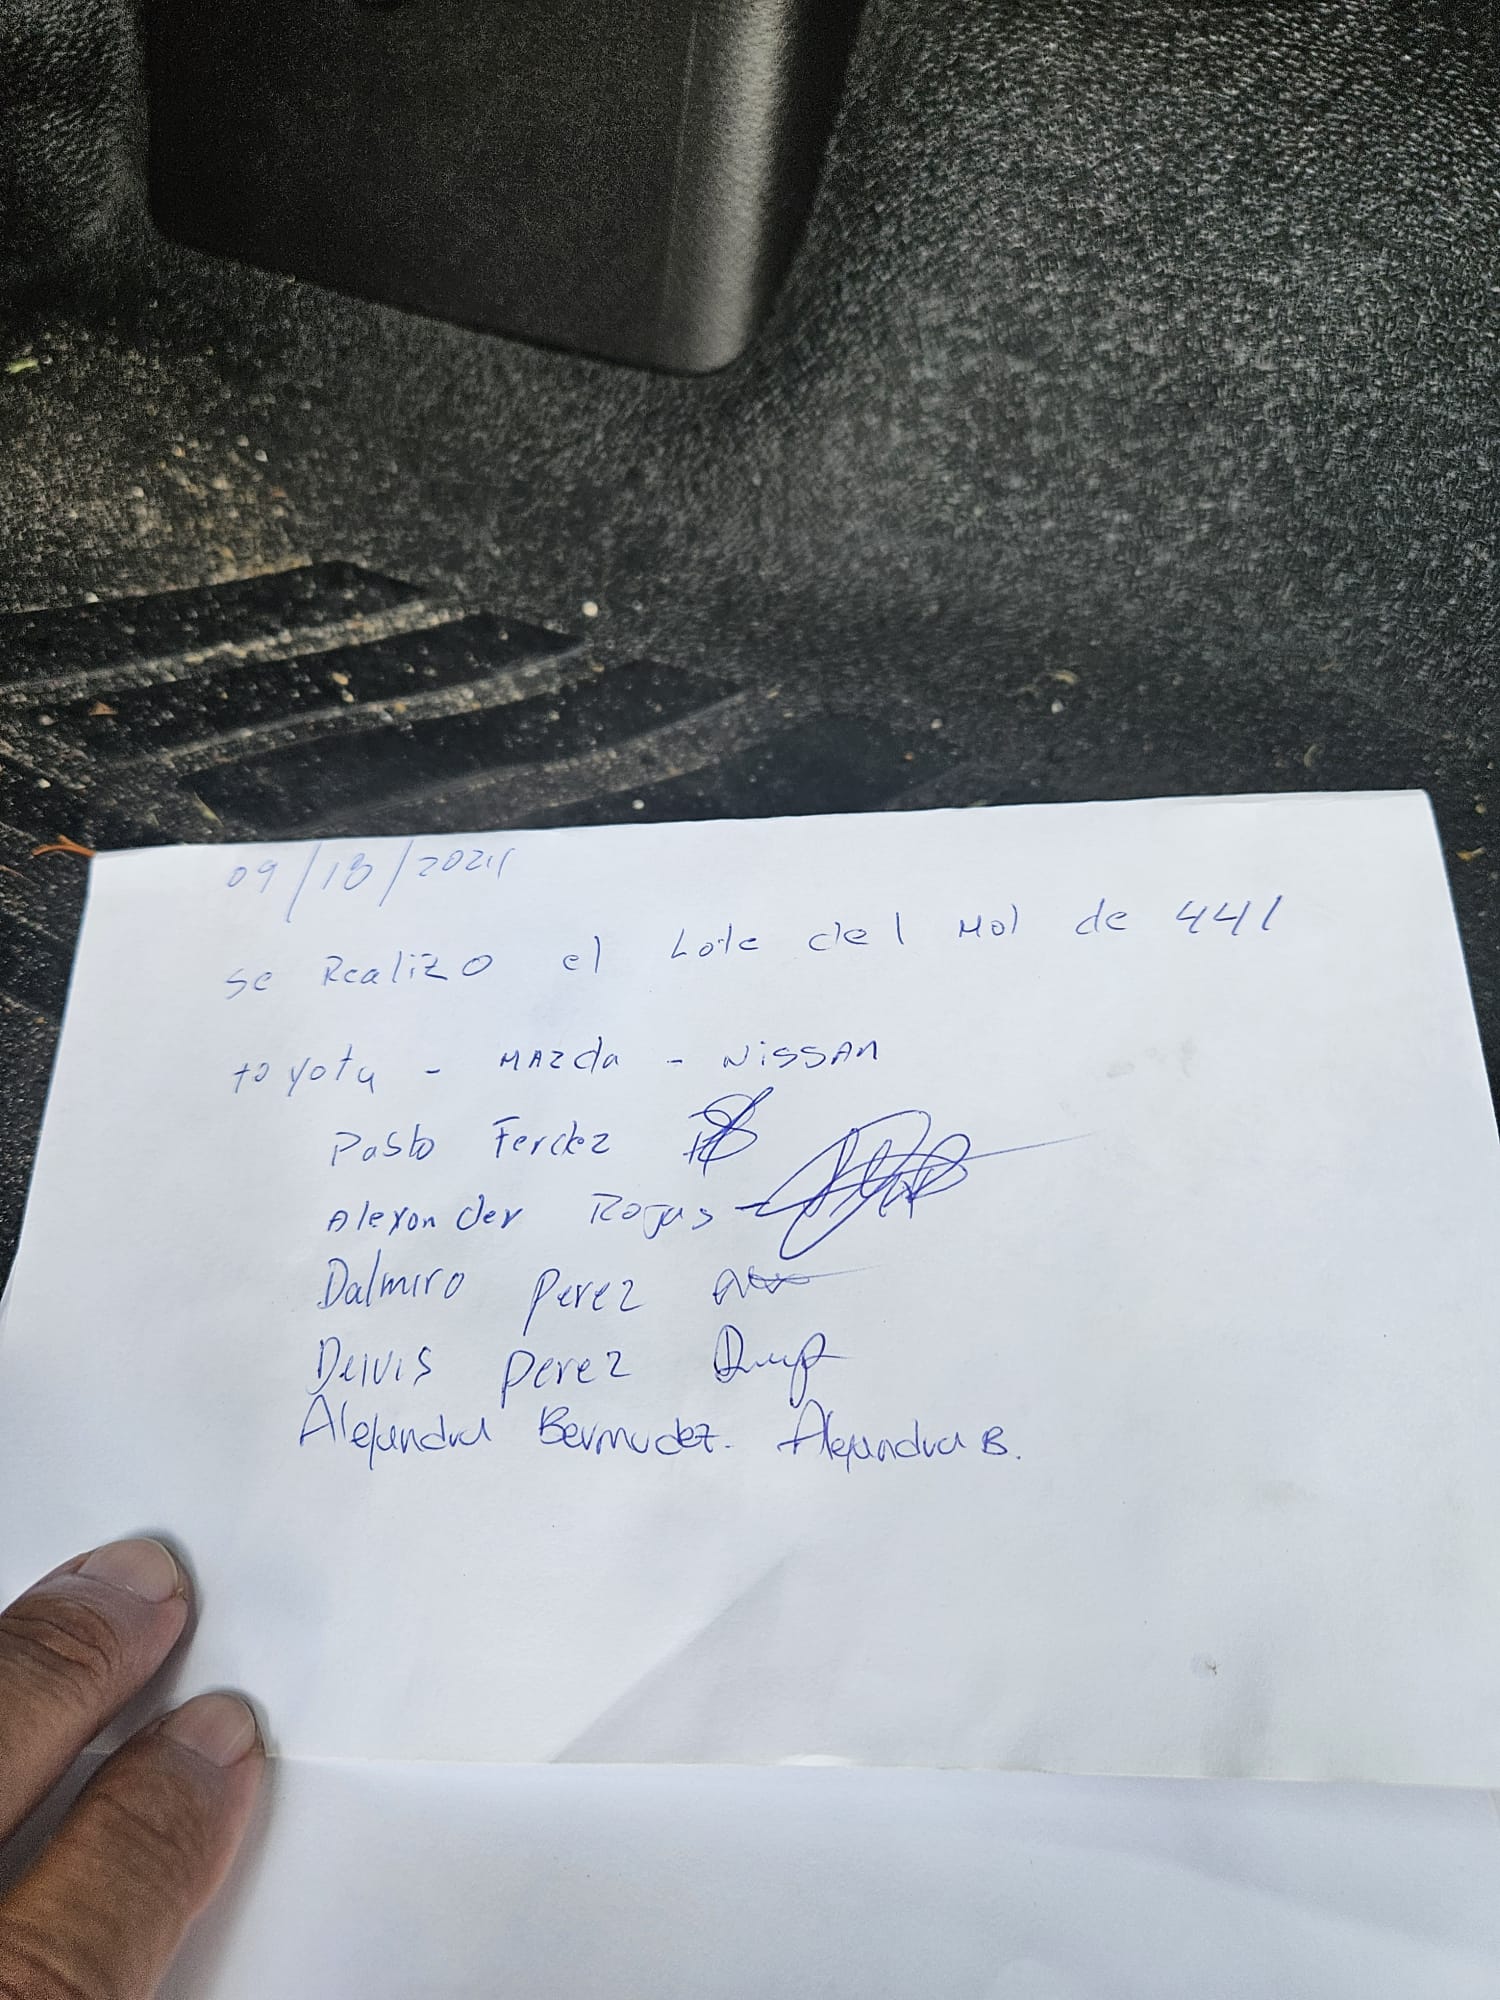 09/18/2024
se Realizo el Lote del Mol de 441
toyota - MAZda - NiSSAN
Pablo Ferdez
Alexander Rojas
Dalmiro Perez
Deivis Perez
Alejandra Bermudez. Alejandra B.